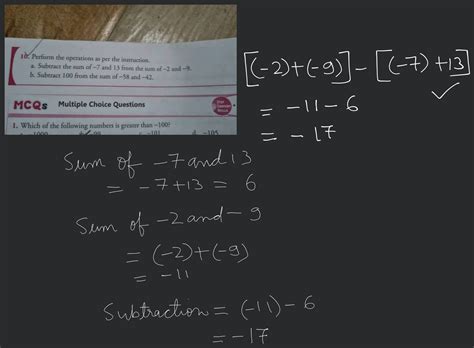 10. Perform the operations as per the instruction.
a. Subtract the sum of -7 and 13 from the sum of -2 and -9.
b. Subtract 100 from the sum of -58 and -42.
MCQs Multiple Choice Questions
1. Which of the following numbers is greater than -100?
-101 d. -105
[(-2)+(-9)] - [(-7) +13]
= -11 - 6
= - 17
Sum of -7 and 13
= -7+13 = 6
Sum of -2 and - 9
= (-2)+(-9)
= -11
Subtraction = (-11) - 6
= -17